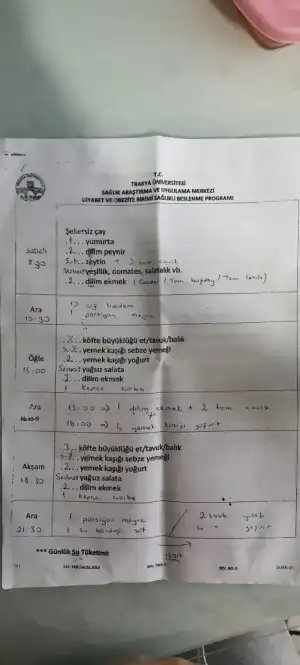 T.C.
TRAKYA ÜNİVERSİTESİ
SAĞLIK ARAŞTIRMA VE UYGULAMA MERKEZİ
DİYABET VE OBEZİTE BİRİMİ SAĞLIKLI BESLENME PROGRAMI
Şekersiz çay
.1... yumurta
Sabah .2... dilim peynir
7:30 5-6.. zeytin
Serbest yeşillik, domates, salatalık vb.
.2... dilim ekmek (Çavdar / Tam buğday / Tam tahıllı)
Ara 10 çiğ badem
10:30 1 porsiyon meyve
.3... köfte büyüklüğü et/tavuk/balık
yemek kaşığı sebze yemeği
Öğle .2... yemek kaşığı yoğurt
13:00 Serbest yağsız salata
.2... dilim ekmek
1 kepçe çorba
Ara 15:00 → 1 dilim ekmek + 2 tam ceviz
18:00 → 4 yemek kaşığı yoğurt
.3... köfte büyüklüğü et/tavuk/balık
yemek kaşığı sebze yemeği
Akşam .2... yemek kaşığı yoğurt
18:30 Serbest yağsız salata
.2... dilim ekmek
1 kepçe çorba
Ara 1 porsiyon meyve
21:30 1 su bardağı süt
2 kaşık yulaf
4 " yoğurt
*** Günlük Su Tüketimi: